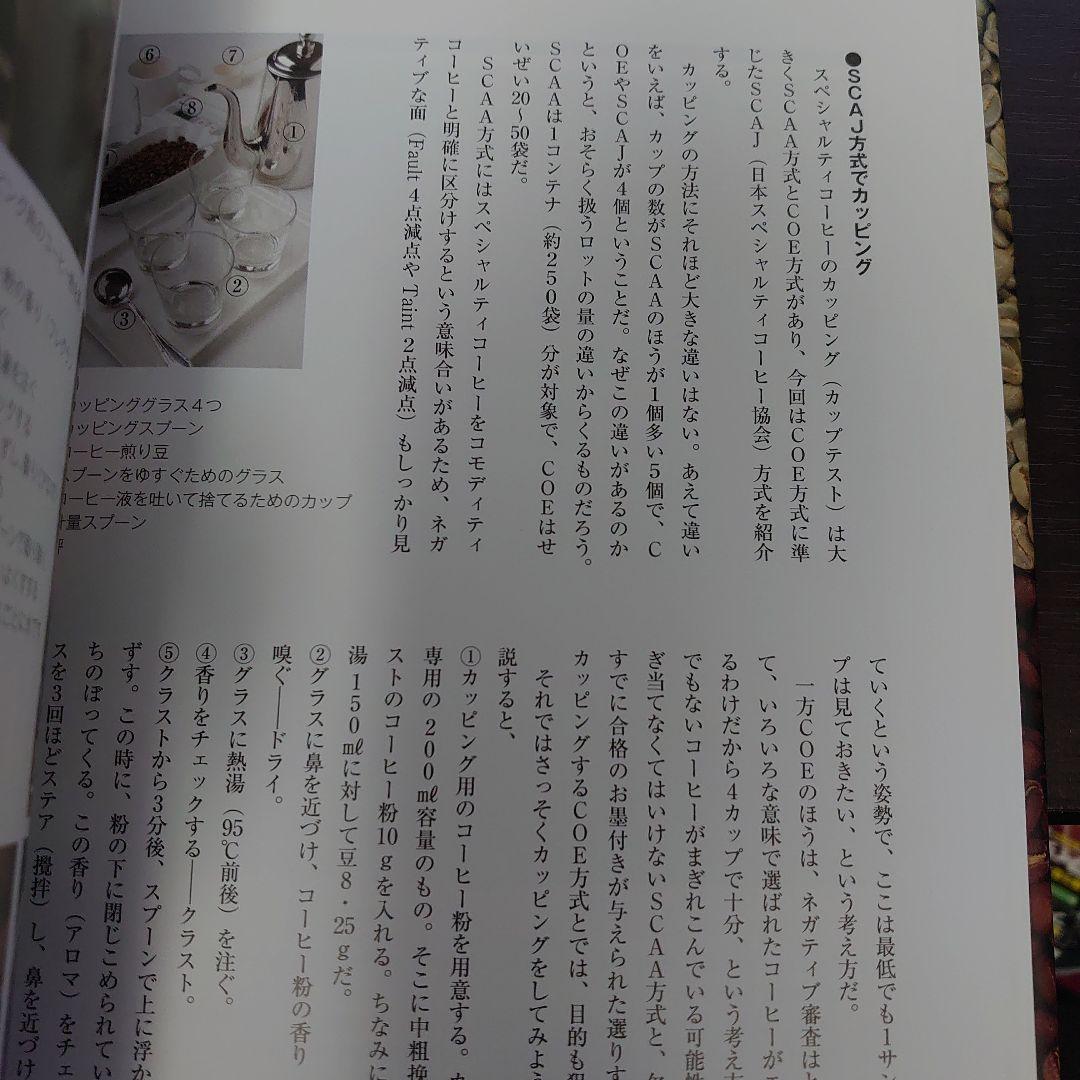 ●SCAJ方式でカッピング
スペシャルティコーヒーのカッピング（カップテスト）は大
きくSCAA方式とCOE方式があり、今回はCOE方式に準
じたSCAJ（日本スペシャルティコーヒー協会）方式を紹介
する。
カッピングの方法にそれほど大きな違いはない。あえて違い
をいえば、カップの数がSCAAのほうが1個多い5個で、C
OEやSCAJが4個ということだ。なぜこの違いがあるのか
というと、おそらく扱うロットの量の違いからくるものだろう。
SCAAは1コンテナ（約250袋）分が対象で、COEはせ
いぜい20〜50袋だ。
SCAA方式にはスペシャルティコーヒーをコモディティ
コーヒーと明確に区分けするという意味合いがあるため、ネガ
ティブな面（Fault 4点減点や Taint 2点減点）もしっかり見
⑥
⑦
⑧
①
②
③
カッピンググラス4つ
カッピングスプーン
コーヒー煎り豆
スプーンをゆすぐためのグラス
コーヒー液を吐いて捨てるためのカップ
計量スプーン
ていくという姿勢で、ここは最低でも1サン
プは見ておきたい、という考え方だ。
一方COEのほうは、ネガティブ審査は
て、いろいろな意味で選ばれたコーヒーが
るわけだから4カップで十分、という考え
でもないコーヒーがまぎれこんでいる可能性
ぎ当てなくてはいけないSCAA方式と、
すでに合格のお墨付きが与えられた選りす
カッピングするCOE方式とでは、目的も
それではさっそくカッピングをしてみよう
説すると、
①カッピング用のコーヒー粉を用意する。
専用の200㎖容量のもの。そこに中粗挽
ストのコーヒー粉10gを入れる。ちなみに
湯150㎖に対して豆8・25gだ。
②グラスに鼻を近づけ、コーヒー粉の香り
嗅ぐ――ドライ。
③グラスに熱湯（95℃前後）を注ぐ。
④香りをチェックする――クラスト。
⑤クラストから3分後、スプーンで上に浮か
ずす。この時に、粉の下に閉じこめられてい
ちのぼってくる。この香り（アロマ）をチェ
スを3回ほどステア（攪拌）し、鼻を近づけ